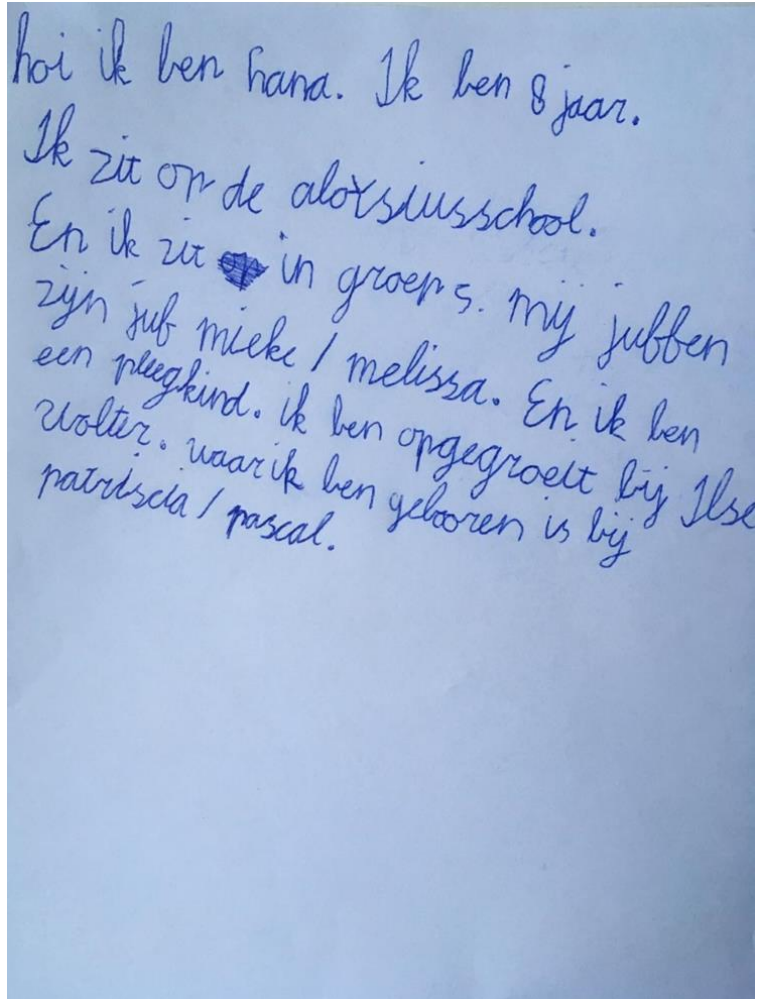 hoi ik ben hana. Ik ben 8 jaar.
Ik zit op de aloysiusschool.
En ik zit in groep 5. mij juffen
zijn juf mieke / melissa. En ik ben
een pleegkind. ik ben opgegroeit bij Ilse
wolter. waar ik ben gebooren is bij
patriscia / pascal.